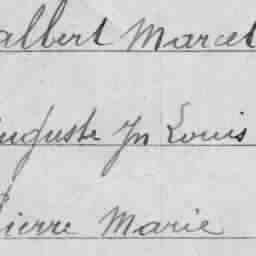 albert Marcel
Auguste Jn Louis
Pierre Marie